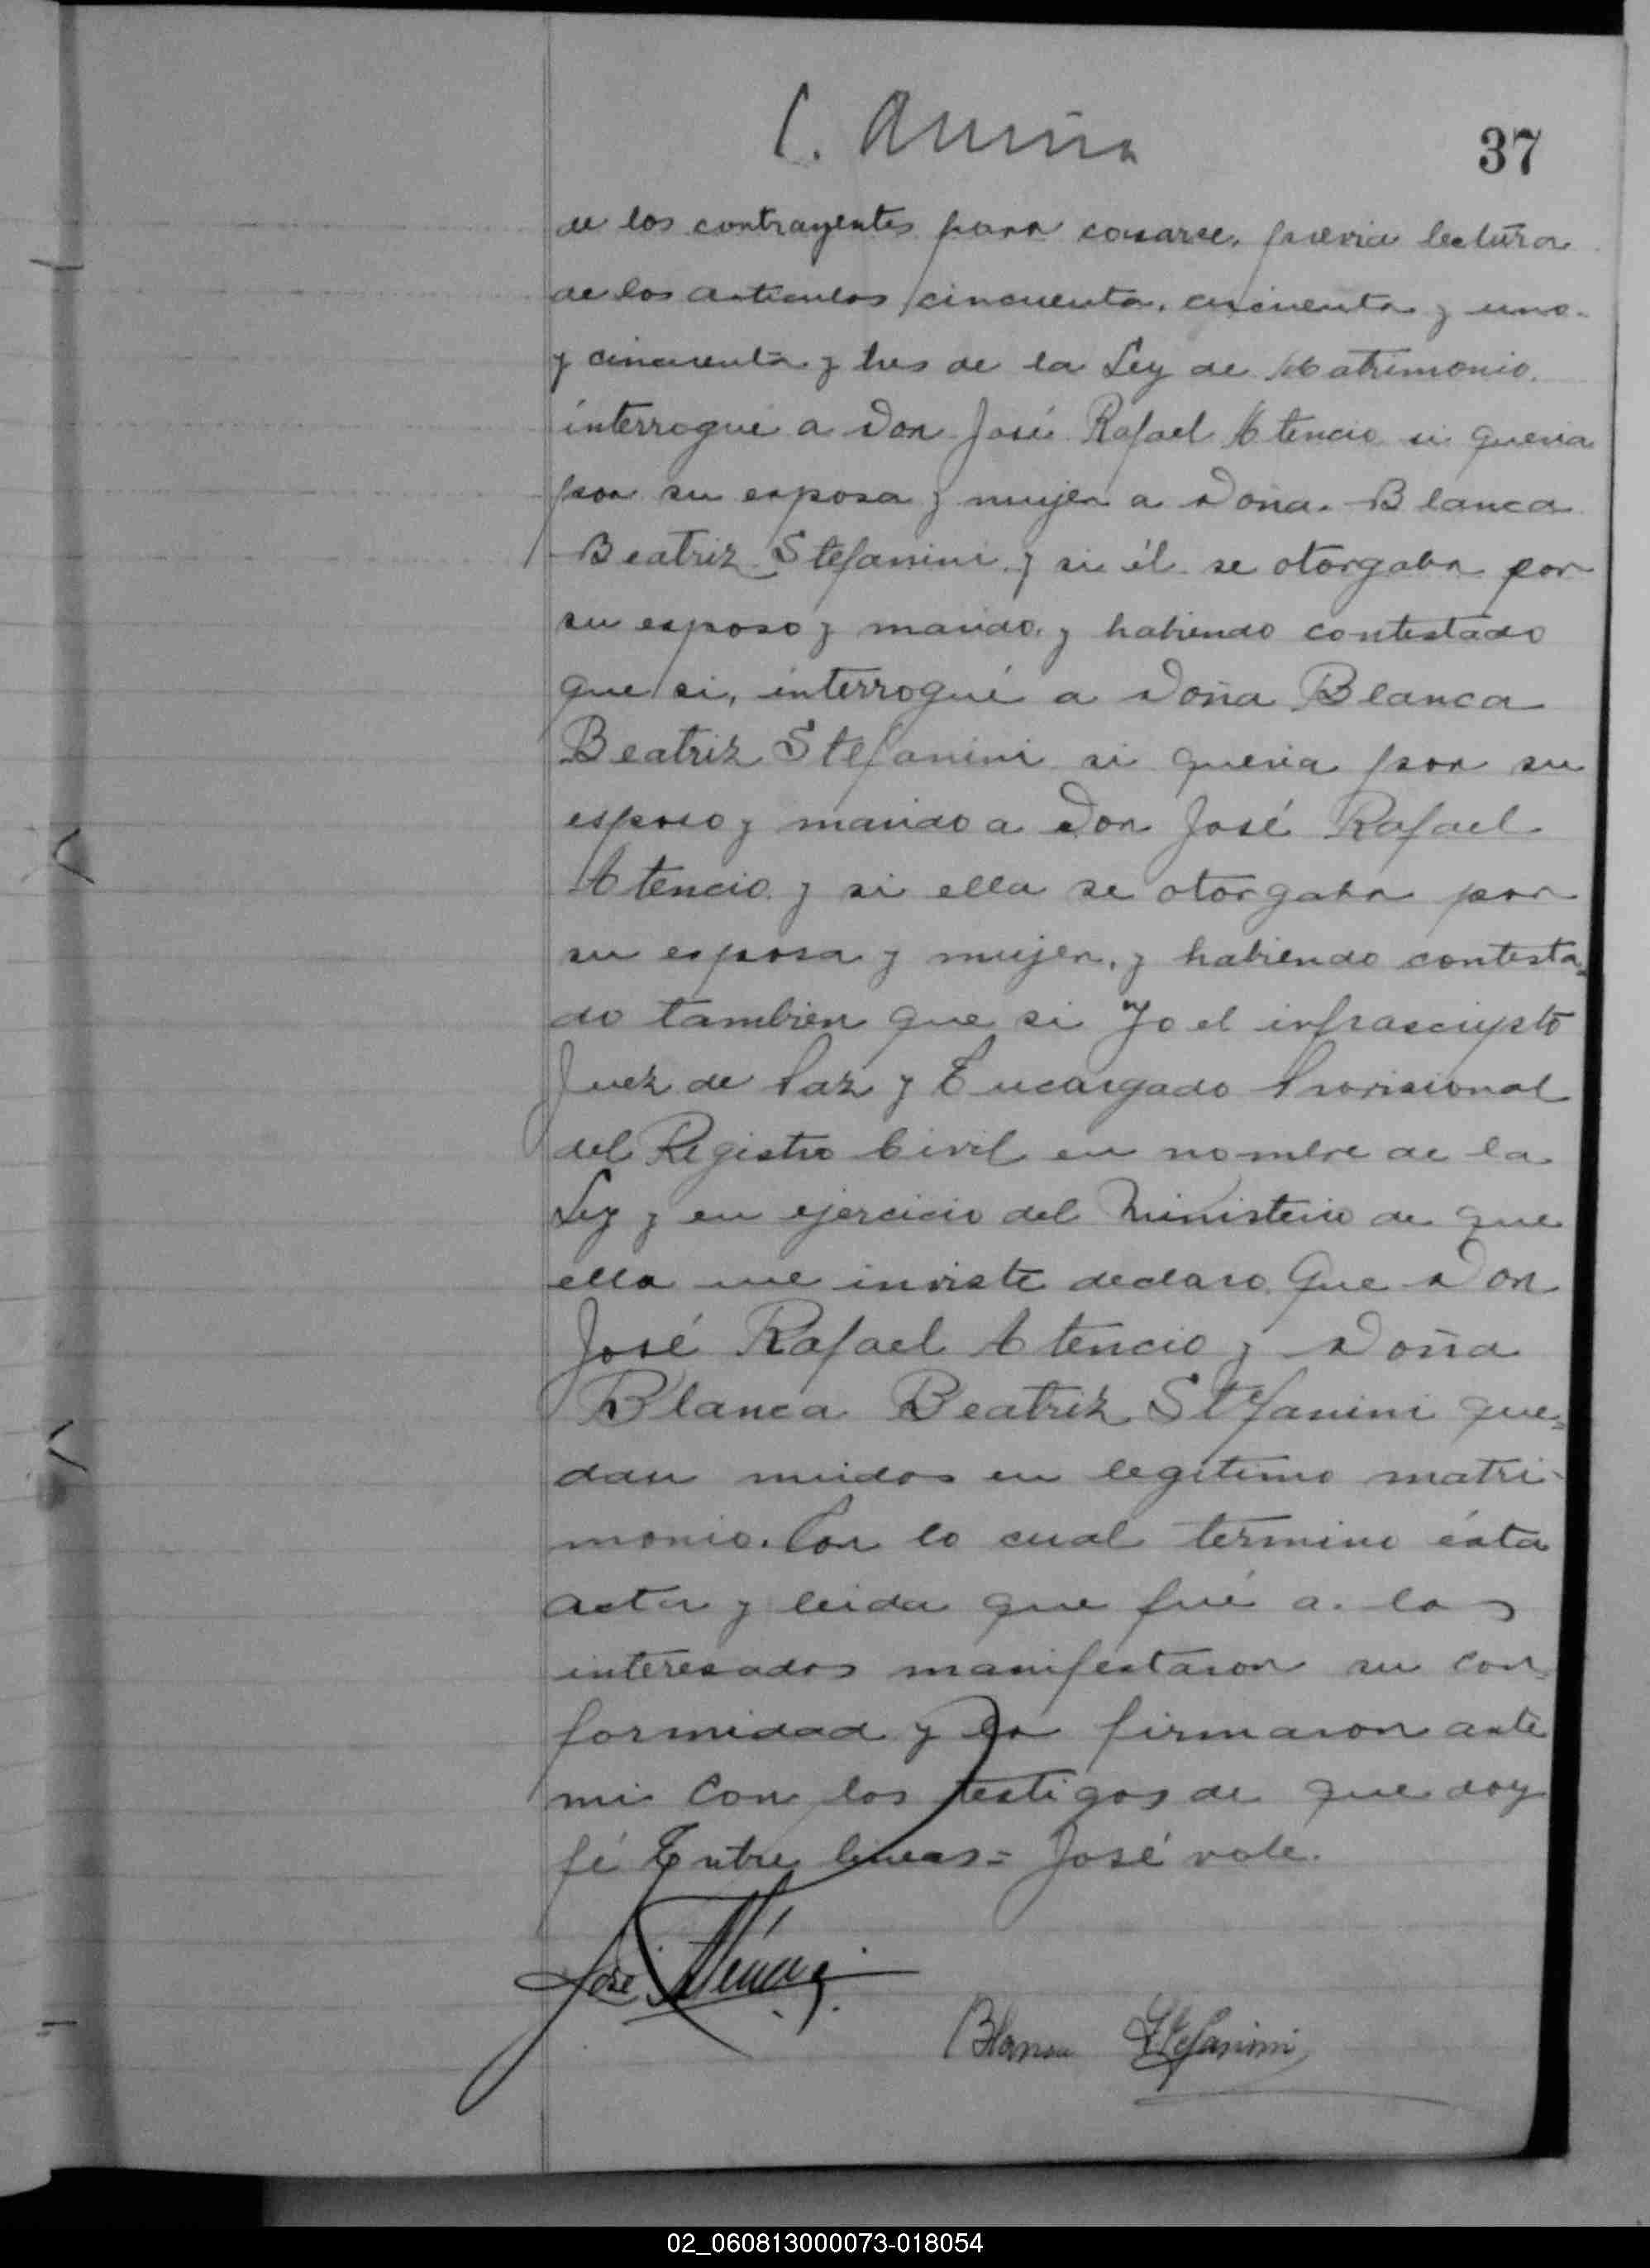 37
de los contrayentes para casarse, previa lectura
de los articulos cincuenta, cincuenta y uno
y cincuenta y tres de la Ley de Matrimonio.
interrogué a Don José Rafael Atencio si queria
por su esposa y mujer a Doña Blanca
Beatriz Stefanini y si él se otorgaba por
su esposo y marido y habiendo contestado
que si, interrogué a Doña Blanca
Beatriz Stefanini si queria por su
esposo y marido a Don José Rafael
Atencio y si ella se otorgaba por
su esposa y mujer, y habiendo contesta=
do tambien que si Yo el infrascripto
Juez de Paz y Encargado Provisional
del Registro Civil en nombre de la
Ley y en ejercicio del Ministerio de que
ella me inviste declaro Que Don
José Rafael Atencio y Doña
Blanca Beatriz Stefanini que=
dan unidos en legitimo matri-
monio. Con lo cual termino ésta
acta y leida que fué a los
interesados manifestaron su con=
formidad y la firmaron ante
mi con los testigos de que doy
fé Entre lineas = José vale.
José Aténcio
Blanca Stefanini
02_060813000073-018054